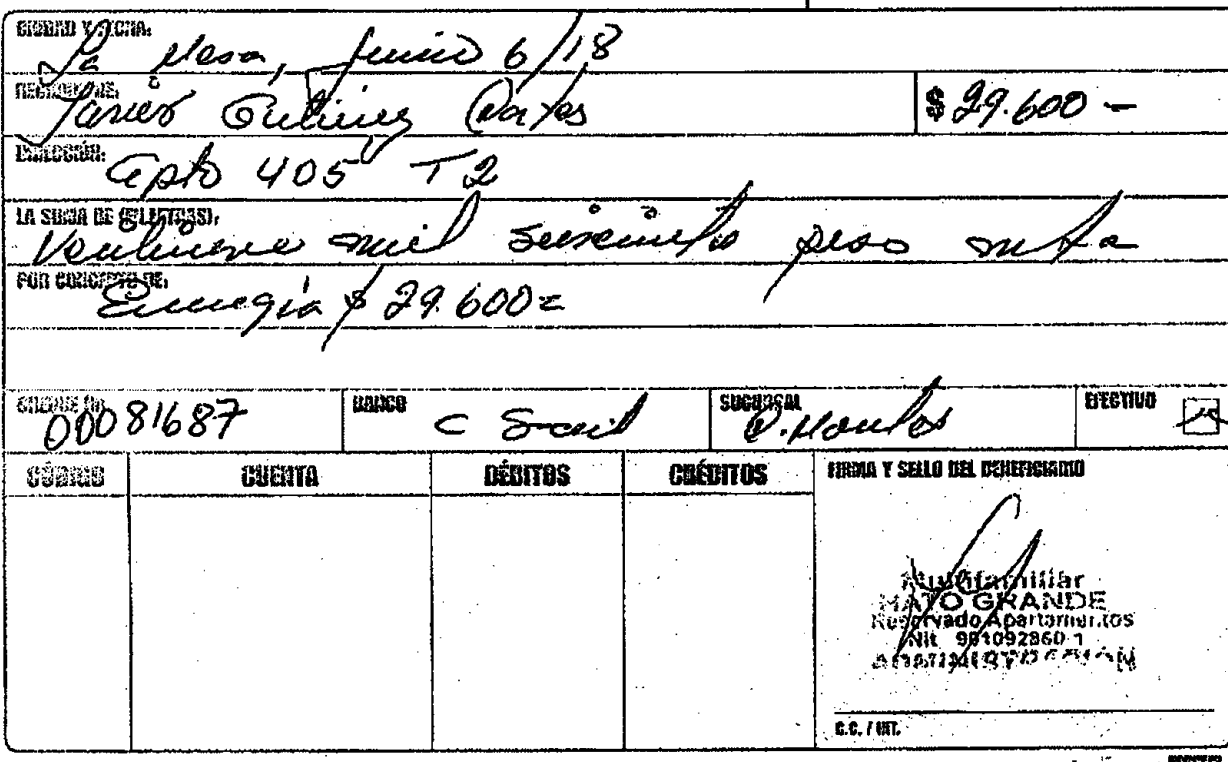 CIUDAD Y FECHA: La Mesa, Junio 6/18
RECIBIDO DE: Javier Gutierrez $ 29.600 -
DIRECCIÓN: Apto 405 T2
LA SUMA DE (EN LETRAS):
Veintinueve mil seiscientos peso m/ta
POR CONCEPTO DE:
Energía $ 29.600=
CHEQUE No. 00081687 BANCO C SUCURSAL EFECTIVO
CÓDIGO CUENTA DÉBITOS CRÉDITOS FIRMA Y SELLO DEL BENEFICIARIO
Multifamiliar
MATO GRANDE
Reservado Apartamentos
Nit. 901092860-1
ADMINISTRACIÓN
C.C. / NIT.